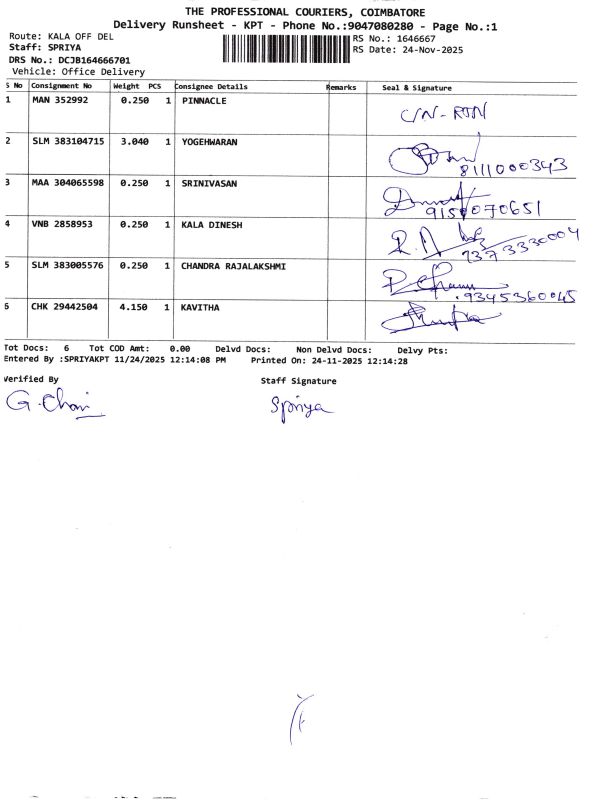 THE PROFESSIONAL COURIERS, COIMBATORE
Delivery Runsheet - KPT - Phone No.:9047080280 - Page No.:1
Route: KALA OFF DEL
RS No.: 1646667
Staff: SPRIYA
RS Date: 24-Nov-2025
DRS No.: DCJB164666701
Vehicle: Office Delivery
S No Consignment No Weight PCS Consignee Details Remarks Seal & Signature
1 MAN 352992 0.250 1 PINNACLE C/N - RTN
2 SLM 383104715 3.040 1 YOGEHWARAN 8111000343
3 MAA 304065598 0.250 1 SRINIVASAN 9150070651
4 VNB 2858953 0.250 1 KALA DINESH 7373330004
5 SLM 383005576 0.250 1 CHANDRA RAJALAKSHMI 9345360045
6 CHK 29442504 4.150 1 KAVITHA
Tot Docs: 6 Tot COD Amt: 0.00 Delvd Docs: Non Delvd Docs: Delvy Pts:
Entered By :SPRIYAKPT 11/24/2025 12:14:08 PM Printed On: 24-11-2025 12:14:28
Verified By Staff Signature
Spriya